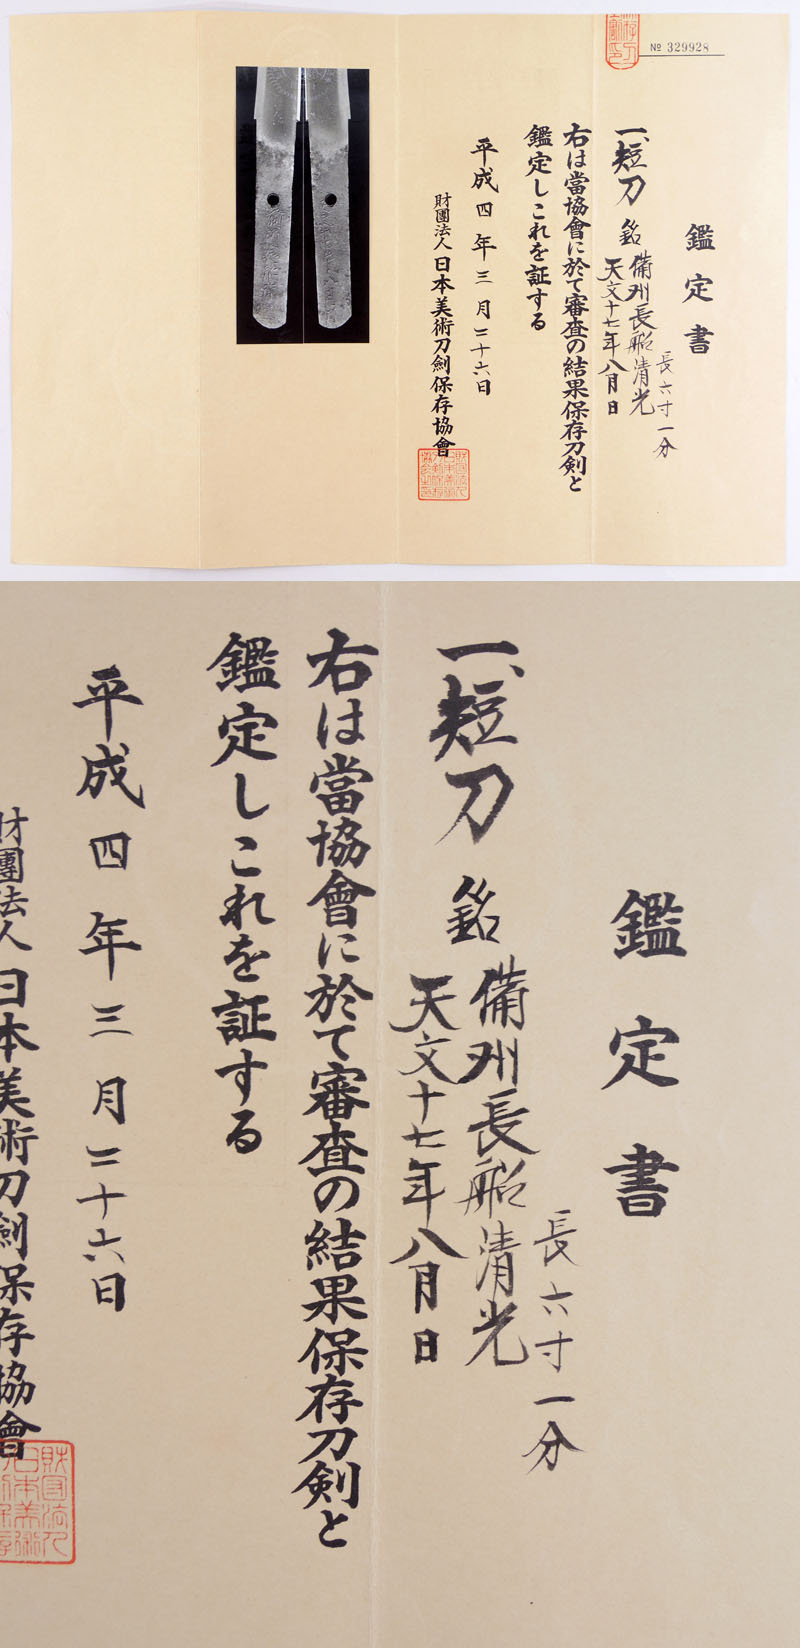 № 329928
鑑定書
一、短刀 銘 備州長船清光
天文十七年八月日
長六寸一分
右は當協會に於て審査の結果保存刀剣と
鑑定しこれを証する
平成四年三月二十六日
財團法人日本美術刀劍保存協會
鑑定書
一、短刀 銘 備州長船清光
天文十七年八月日
長六寸一分
右は當協會に於て審査の結果保存刀剣と
鑑定しこれを証する
平成四年三月二十六日
財團法人日本美術刀劍保存協會